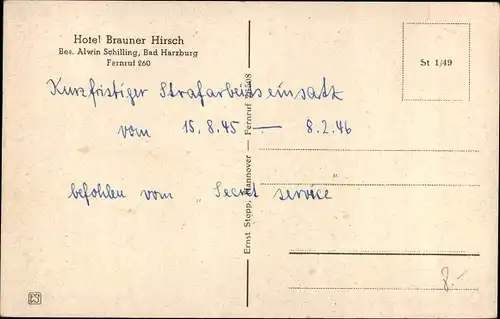 Hotel Brauner Hirsch
Bes. Alwin Schilling, Bad Harzburg
Fernruf 260
St 1/49
Kurzfristiger Strafarbeitseinsatz
vom 15.8.45 — 8.2.46
befohlen vom „Secret service"
Ernst Stopp, Hannover — Fernruf
8.-